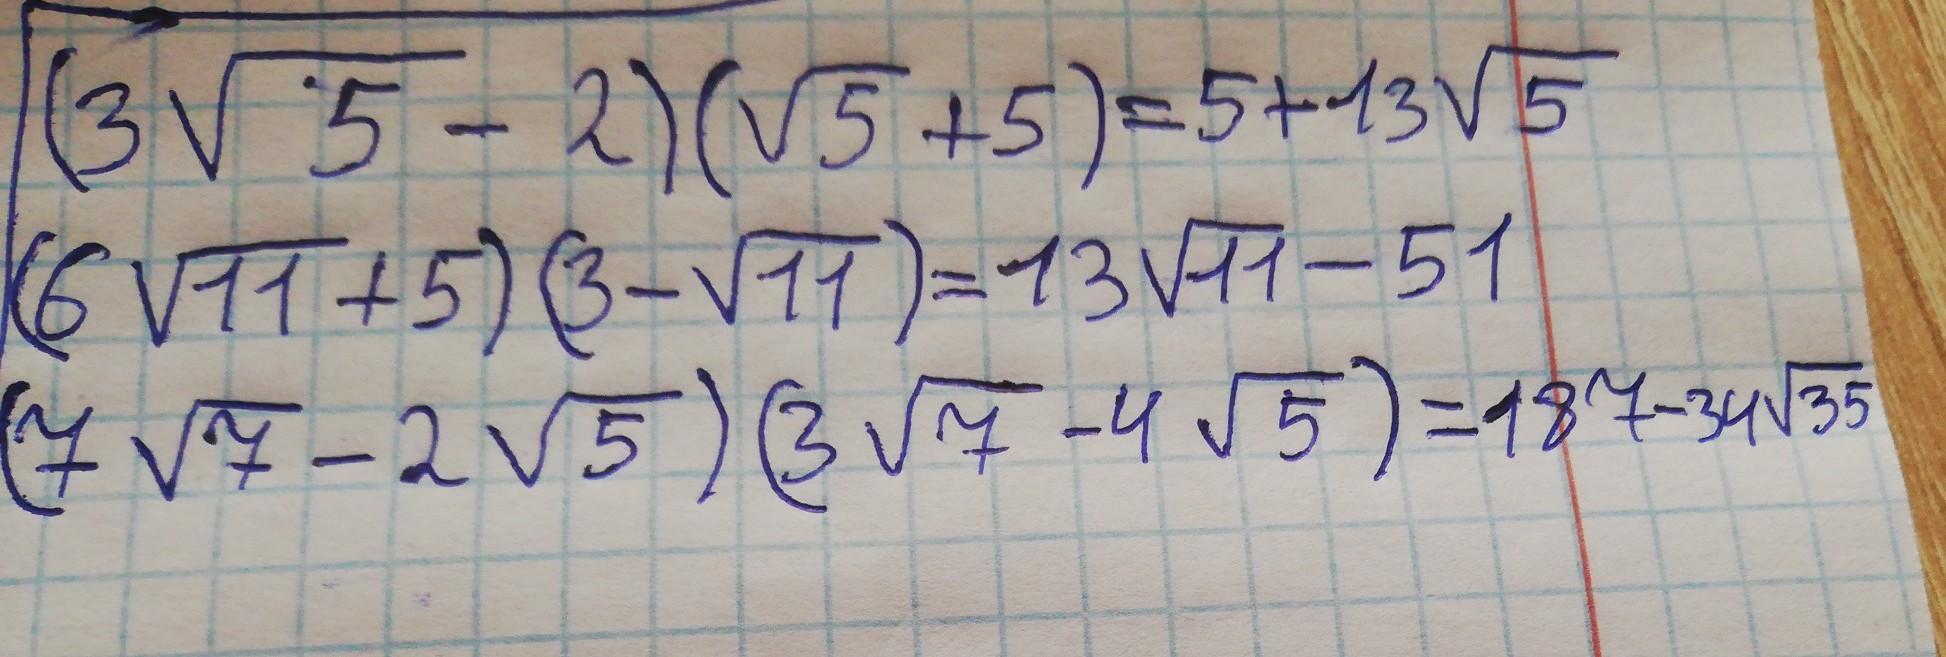 (3√5 - 2)(√5 + 5) = 5 + 13√5
(6√11 + 5)(3 - √11) = 13√11 - 51
(7√7 - 2√5)(3√7 - 4√5) = 187 - 34√35